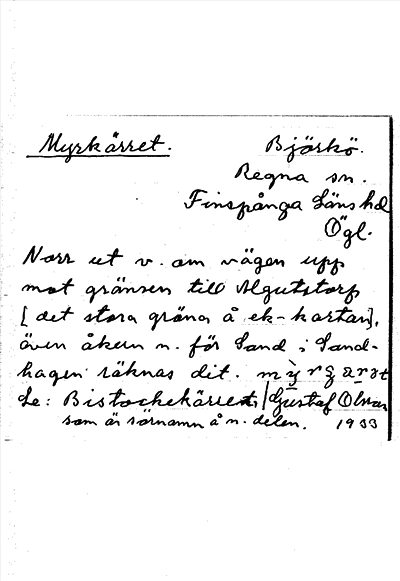 Myrkärret. Björkö.
Regna sn.
Finspånga läns hd
Ögl.
Norr ut v. om vägen upp
mot gränsen till Algutstorp
[det stora gröna å ek-kartan],
även åkern n. för Sand i Sand-
hagen räknas dit.
Se: Bistockekärret, Gustaf Olsson
som är särnamn å n. delen. 1933